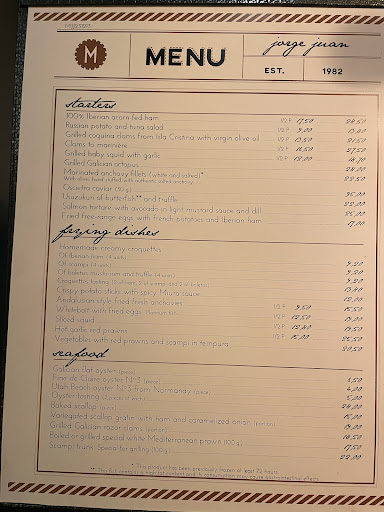 M
MENU
jorge juan
EST. 1982
starters
100% Iberian acorn-fed ham 1/2 P 17,50
Russian potato and tuna salad 1/2 P 9,00
Grilled coquina clams from Isla Cristina with virgin olive oil 1/2 P 13,50 21,50
Clams to marinière 1/2 P 16,50 27,50
Grilled baby squid with garlic 1/2 P 12,00
Grilled Galician octopus
Marinated anchovy fillets (white and salted)*
With olives
Oscietra caviar (30 g) 95,00
Usuzukuri of butterfish** and truffle 22,00
Salmon tartare with avocado in light mustard sauce and dill 25,00
Fried free-range eggs with french potatoes and Iberian ham 17,00
frying dishes
Homemade creamy croquettes
Of Iberian ham (4 units) 9,20
Of scampi (4 units) 9,20
Of boletus mushroom and truffle (4 units) 9,20
Croquettes tasting 13,80
Crispy potato sticks with spicy Miura sauce 12,00
Andalusian style fried fresh anchovies 1/2 P 9,50 15,50
Whitebait with fried eggs 1/2 P 12,50 19,00
Sliced squid 1/2 P 19,50
Hot garlic red prawns 1/2 P 15,00 25,50
Vegetables with red prawns and scampi in tempura 20,50
seafood
Galician flat oyster (piece)
Fine de Claire oyster Nº3 (piece)
Utah Beach oyster Nº3 from Normandy (piece)
Oyster tasting 24,00
Baked scallop (piece) 15,00
Variegated scallop gratin with ham and caramelized onion (portion) 19,00
Grilled Galician razor clams (portion) 18,50
Boiled or grilled special white Mediterranean prawn (100 g) 17,50
Scampi trunk. Special for grilling (100 g) 22,00
* This product has been previously frozen at least 72 hours
** This fish contains a high fat content and its consumption may cause gastrointestinal effects